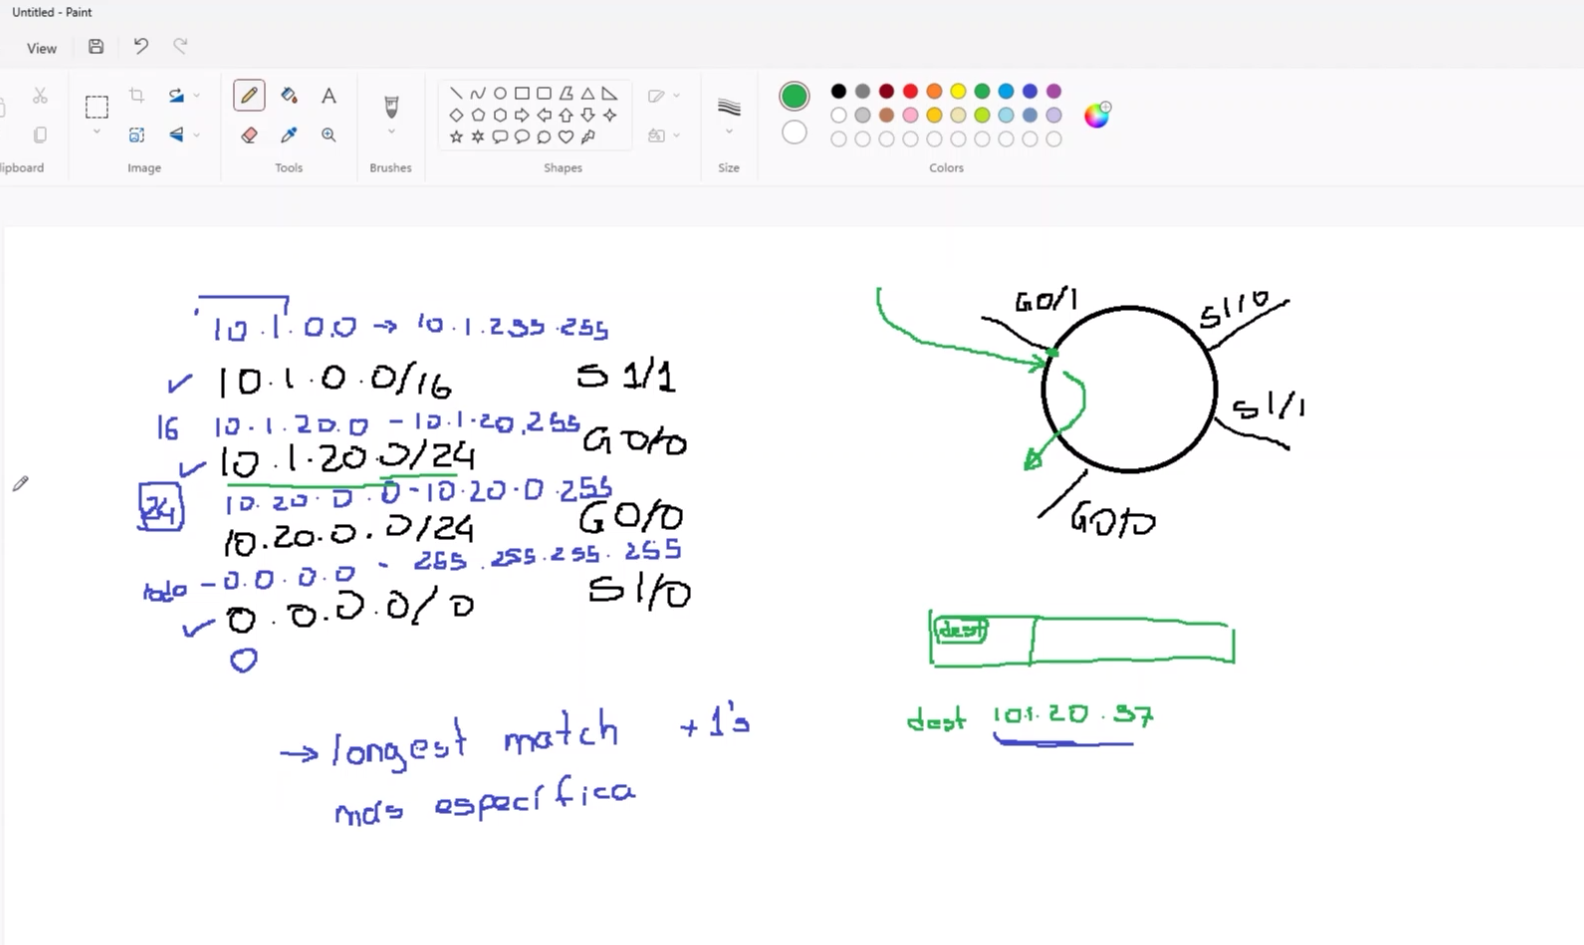 Untitled - Paint
View
lipboard
Image
Tools
Brushes
Shapes
Size
Colors
10.1.0.0 → 10.1.255.255
✓ 10.1.0.0/16 S 1/1
16 10.1.20.0 - 10.1.20.255
✓ 10.1.20.0/24 G0/0
24 10.20.0.0 - 10.20.0.255
10.20.0.0/24 G0/0
todo - 0.0.0.0 - 255.255.255.255
✓ 0.0.0.0/0 S1/0
0
→ longest match +1's
más específica
G0/1
S1/0
S1/1
G0/0
dest
dest 10.1.20.37